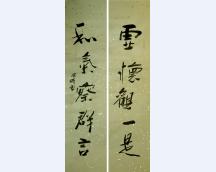 虚懷觀一是
和氣察群言